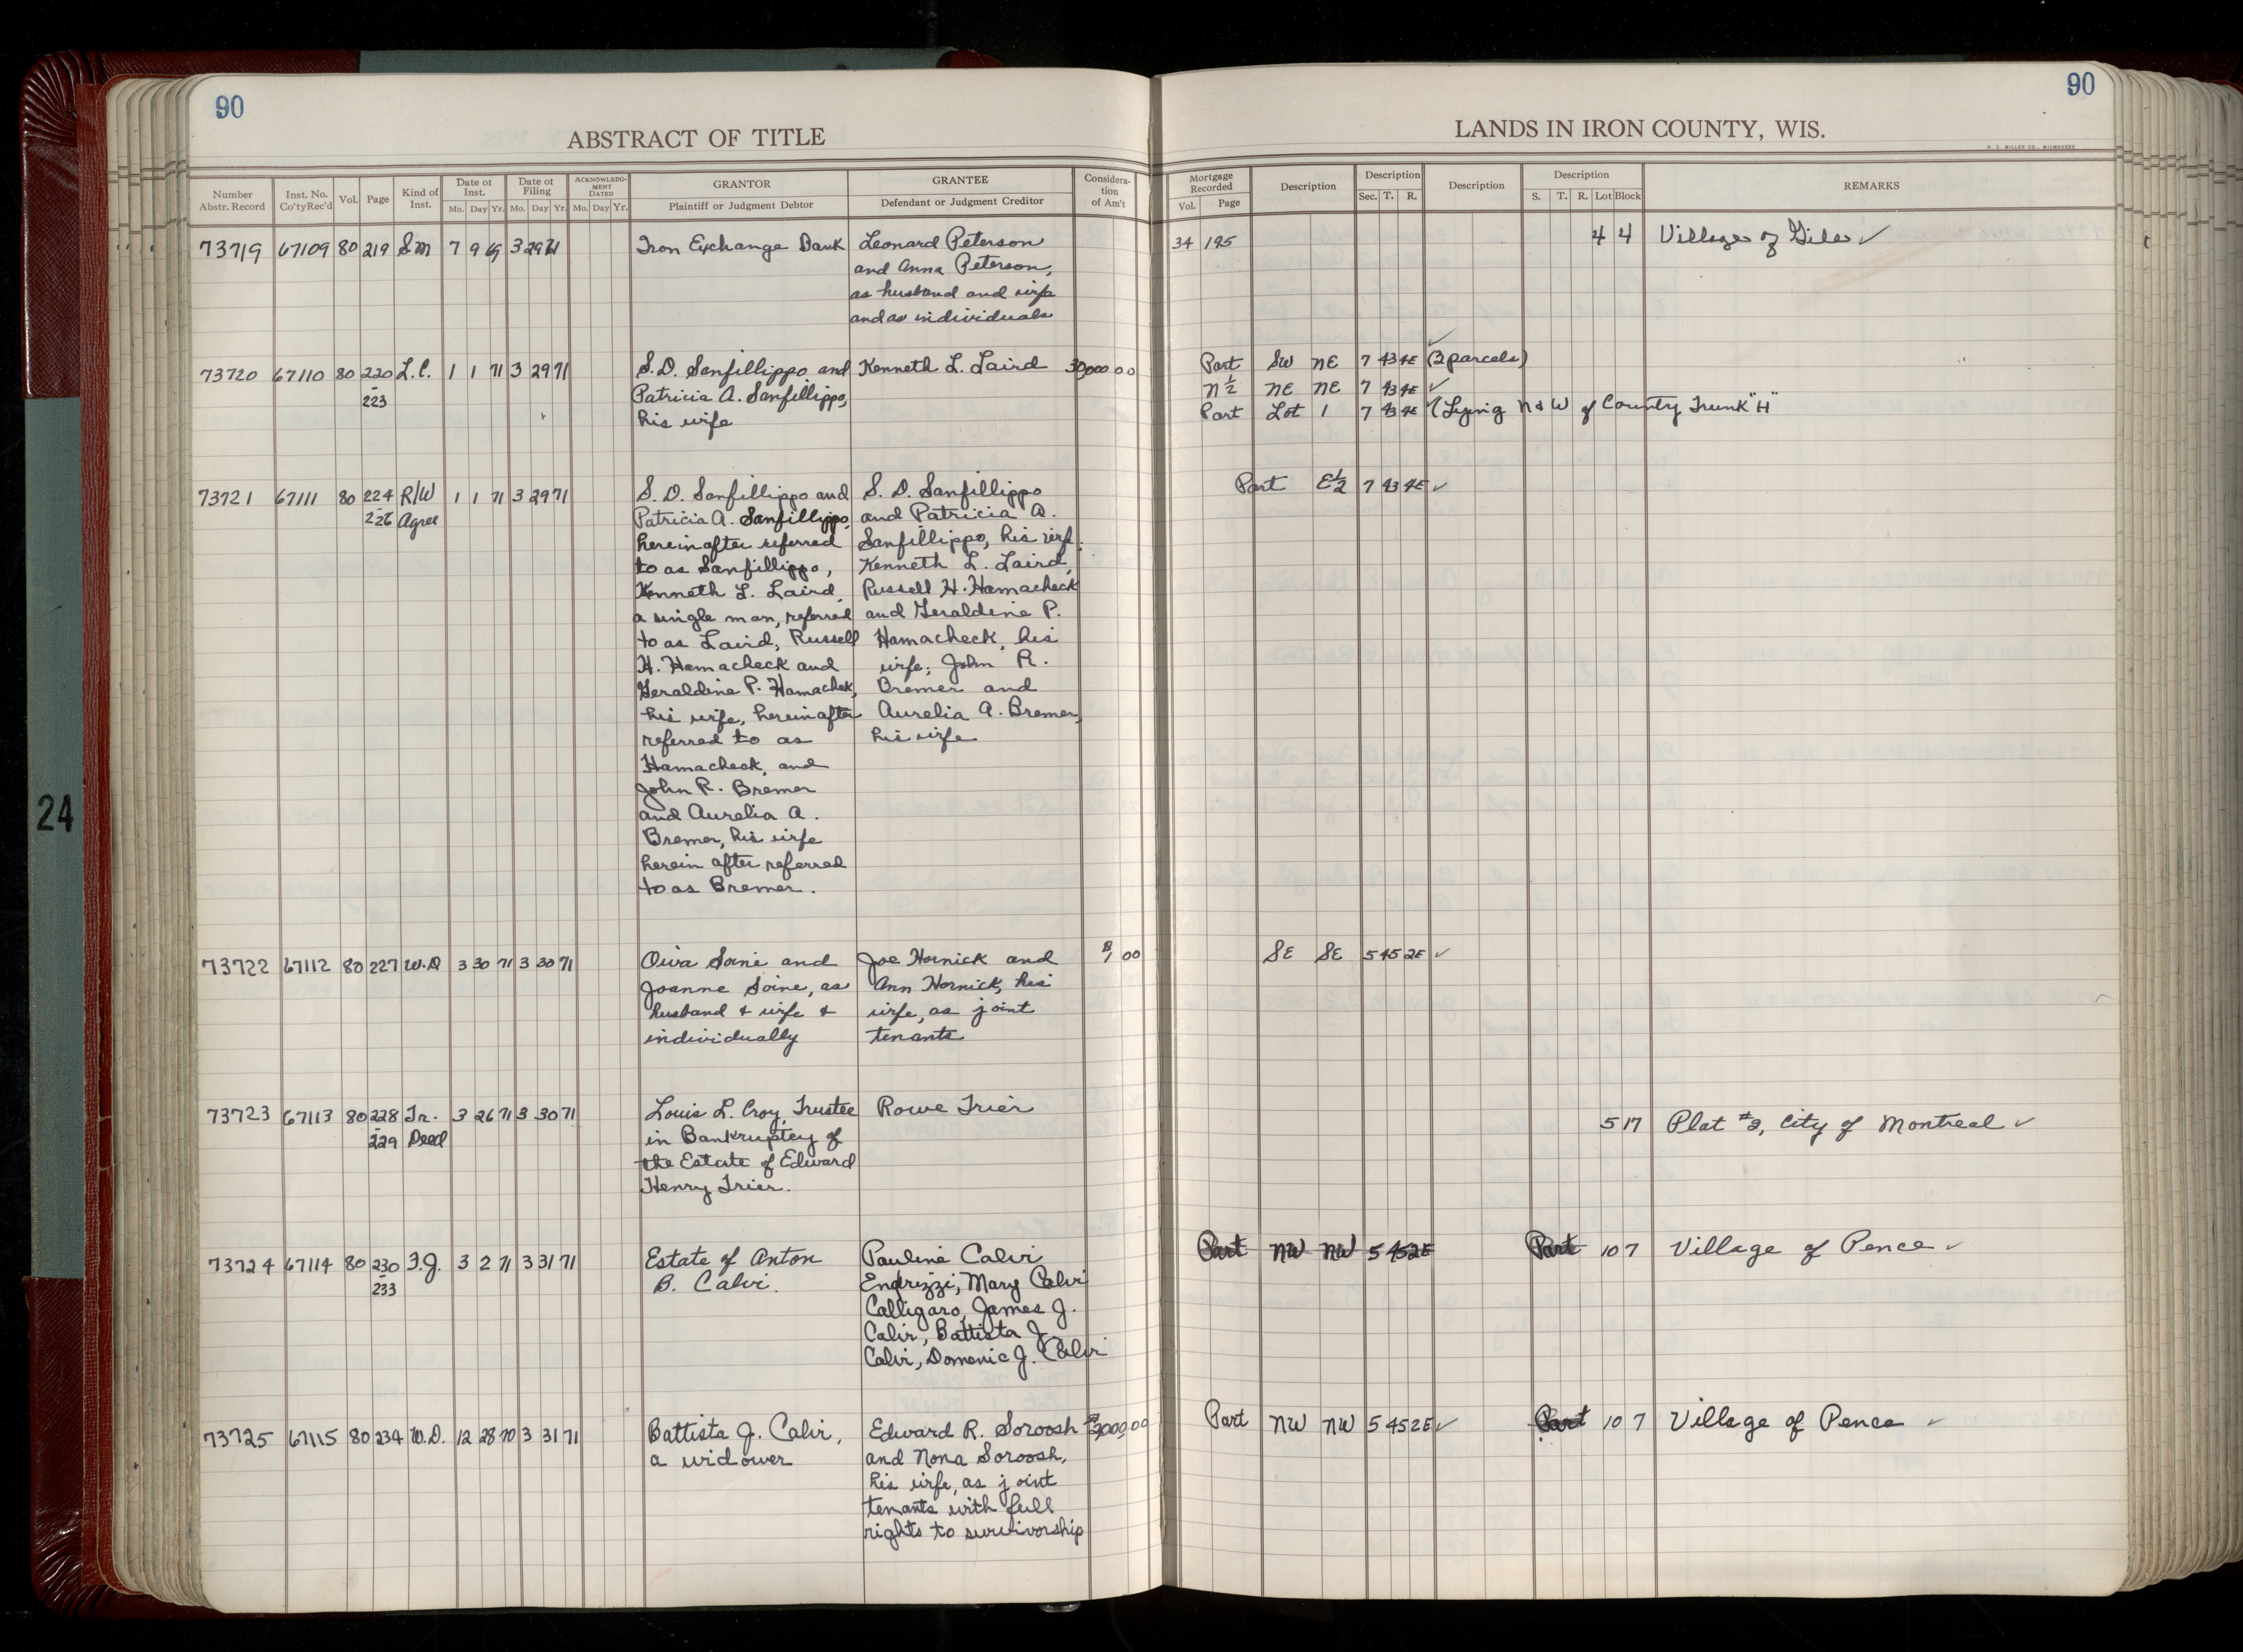 90
90
ABSTRACT OF TITLE
LANDS IN IRON COUNTY, WIS.
H. C. MILLER CO., MILWAUKEE
Number Abstr. Record Inst. No. Co'tyRec'd Vol. Page Kind of Inst. Date of Inst. Mo. Day Yr. Date of Filing Mo. Day Yr. ACKNOWLEDG-MENT DATED Mo. Day Yr. GRANTOR Plaintiff or Judgment Debtor GRANTEE Defendant or Judgment Creditor Considera-tion of Am't
Mortgage Recorded Vol. Page Description Description Sec. T. R. Description Description S. T. R. Lot Block REMARKS
73719 67109 80 219 Sm 7 9 69 3 29 71 Iron Exchange Bank Leonard Peterson 34 195 4 4 Village of Gile ✓
and Anna Peterson,
as husband and wife
and as individuals
73720 67110 80 220 L.C. 1 1 71 3 29 71 S.D. Sanfillippo and Kenneth L. Laird 30,000 00 Part SW NE 7 43 4E (2 parcels) ✓
-223 Patricia A. Sanfillippo, N½ NE NE 7 43 4E ✓
his wife Part Lot 1 7 43 4E ✓ (Lying N & W of County Trunk "H"
73721 67111 80 224 R/W 1 1 71 3 29 71 S. D. Sanfillippo and S. D. Sanfillippo Part E½ 7 43 4E ✓
-226 Agree Patricia A. Sanfillippo, and Patricia A.
hereinafter referred Sanfillippo, his wife;
to as Sanfillippo, Kenneth L. Laird,
Kenneth L. Laird, Russell H. Hamacheck
a single man, referred and Geraldine P.
to as Laird, Russell Hamacheck, his
H. Hamacheck and wife; John R.
Geraldine P. Hamachek, Bremer and
his wife, hereinafter Aurelia A. Bremer,
referred to as his wife
Hamacheck, and
John R. Bremer
and Aurelia A.
Bremer, his wife
herein after referred
to as Bremer.
73722 67112 80 227 W.D 3 30 71 3 30 71 Oiva Soine and Joe Hornick and $1 00 SE SE 5 45 2E ✓
Joanne Soine, as Ann Hornick, his
husband & wife & wife, as joint
individually tenants
73723 67113 80 228 Tr. 3 26 71 3 30 71 Louis L. Croy, Trustee Rowe Trier 5 17 Plat #2, City of Montreal ✓
-229 Deed in Bankruptcy of
the Estate of Edward
Henry Trier.
73724 67114 80 230 F.J. 3 2 71 3 31 71 Estate of Anton Pauline Calvi Part NW NW 5 45 2E Part 10 7 Village of Pence ✓
-233 B. Calvi. Endrizzi, Mary Calvi
Calligaro, James J.
Calvi, Battista J.
Calvi, Domenic J. Calvi
73725 67115 80 234 W.D. 12 28 70 3 31 71 Battista J. Calvi, Edward R. Soroosh $3,000 00 Part NW NW 5 45 2E ✓ Part 10 7 Village of Pence ✓
a widower and Nona Soroosh,
his wife, as joint
tenants with full
rights to survivorship
24